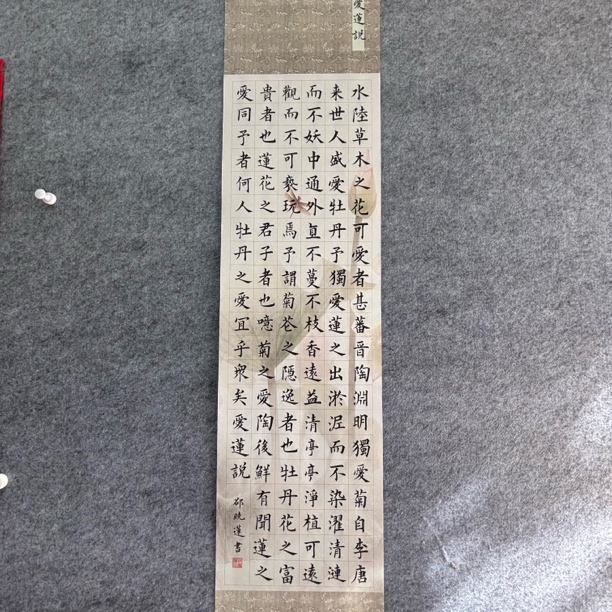 愛蓮說
水陸草木之花可愛者甚蕃晋陶淵明獨愛菊自李唐
来世人盛愛牡丹予獨愛蓮之出淤泥而不染濯清漣
而不妖中通外直不蔓不枝香遠益清亭亭淨植可遠
觀而不可褻玩焉予謂菊花之隱逸者也牡丹花之富
貴者也蓮花之君子者也噫菊之愛陶後鮮有聞蓮之
愛同予者何人牡丹之愛宜乎眾矣愛蓮說
邵晓蓮書